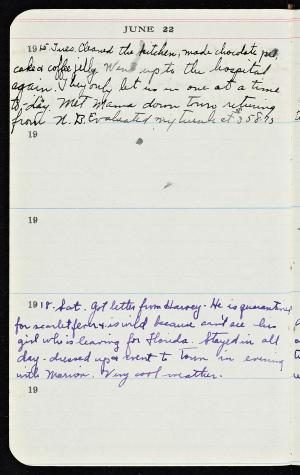 JUNE 22
1915 Tues. Cleaned the kitchen, made chocolate pie,
cake & coffee jelly. Went up to the hospital
again. They only let us in one at a time
to-day. Met Mama down town returning
from N. B. Evaluated my trunk at $358.73
19
19
1918. Sat. Got letter from Harvey. He is quarantined
for scarlet fever & is wild because can't see his
girl who is leaving for Florida. Stayed in all
day - dressed up & went to town in evening
with Marion. Very cool weather.
19